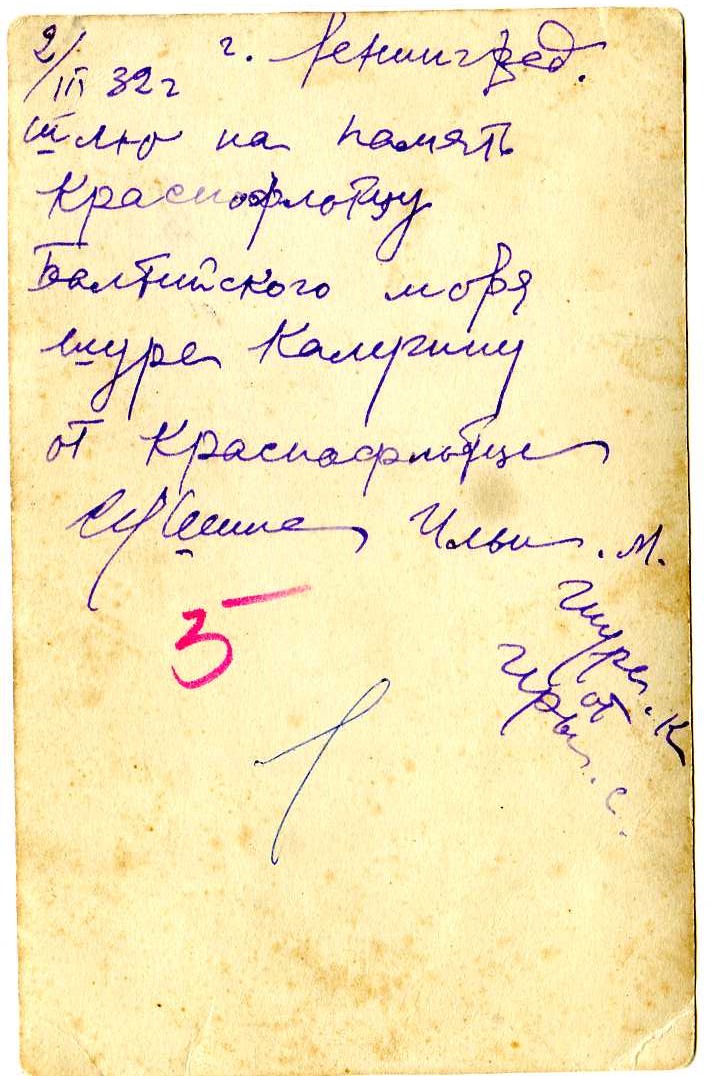 2/III 32 г г. Ленинград.
Шлю на память
Краснофлотцу
Балтийского моря
Шуре Калугину
от Краснофлотца
Ильи. М.
5
Шуре. К
от